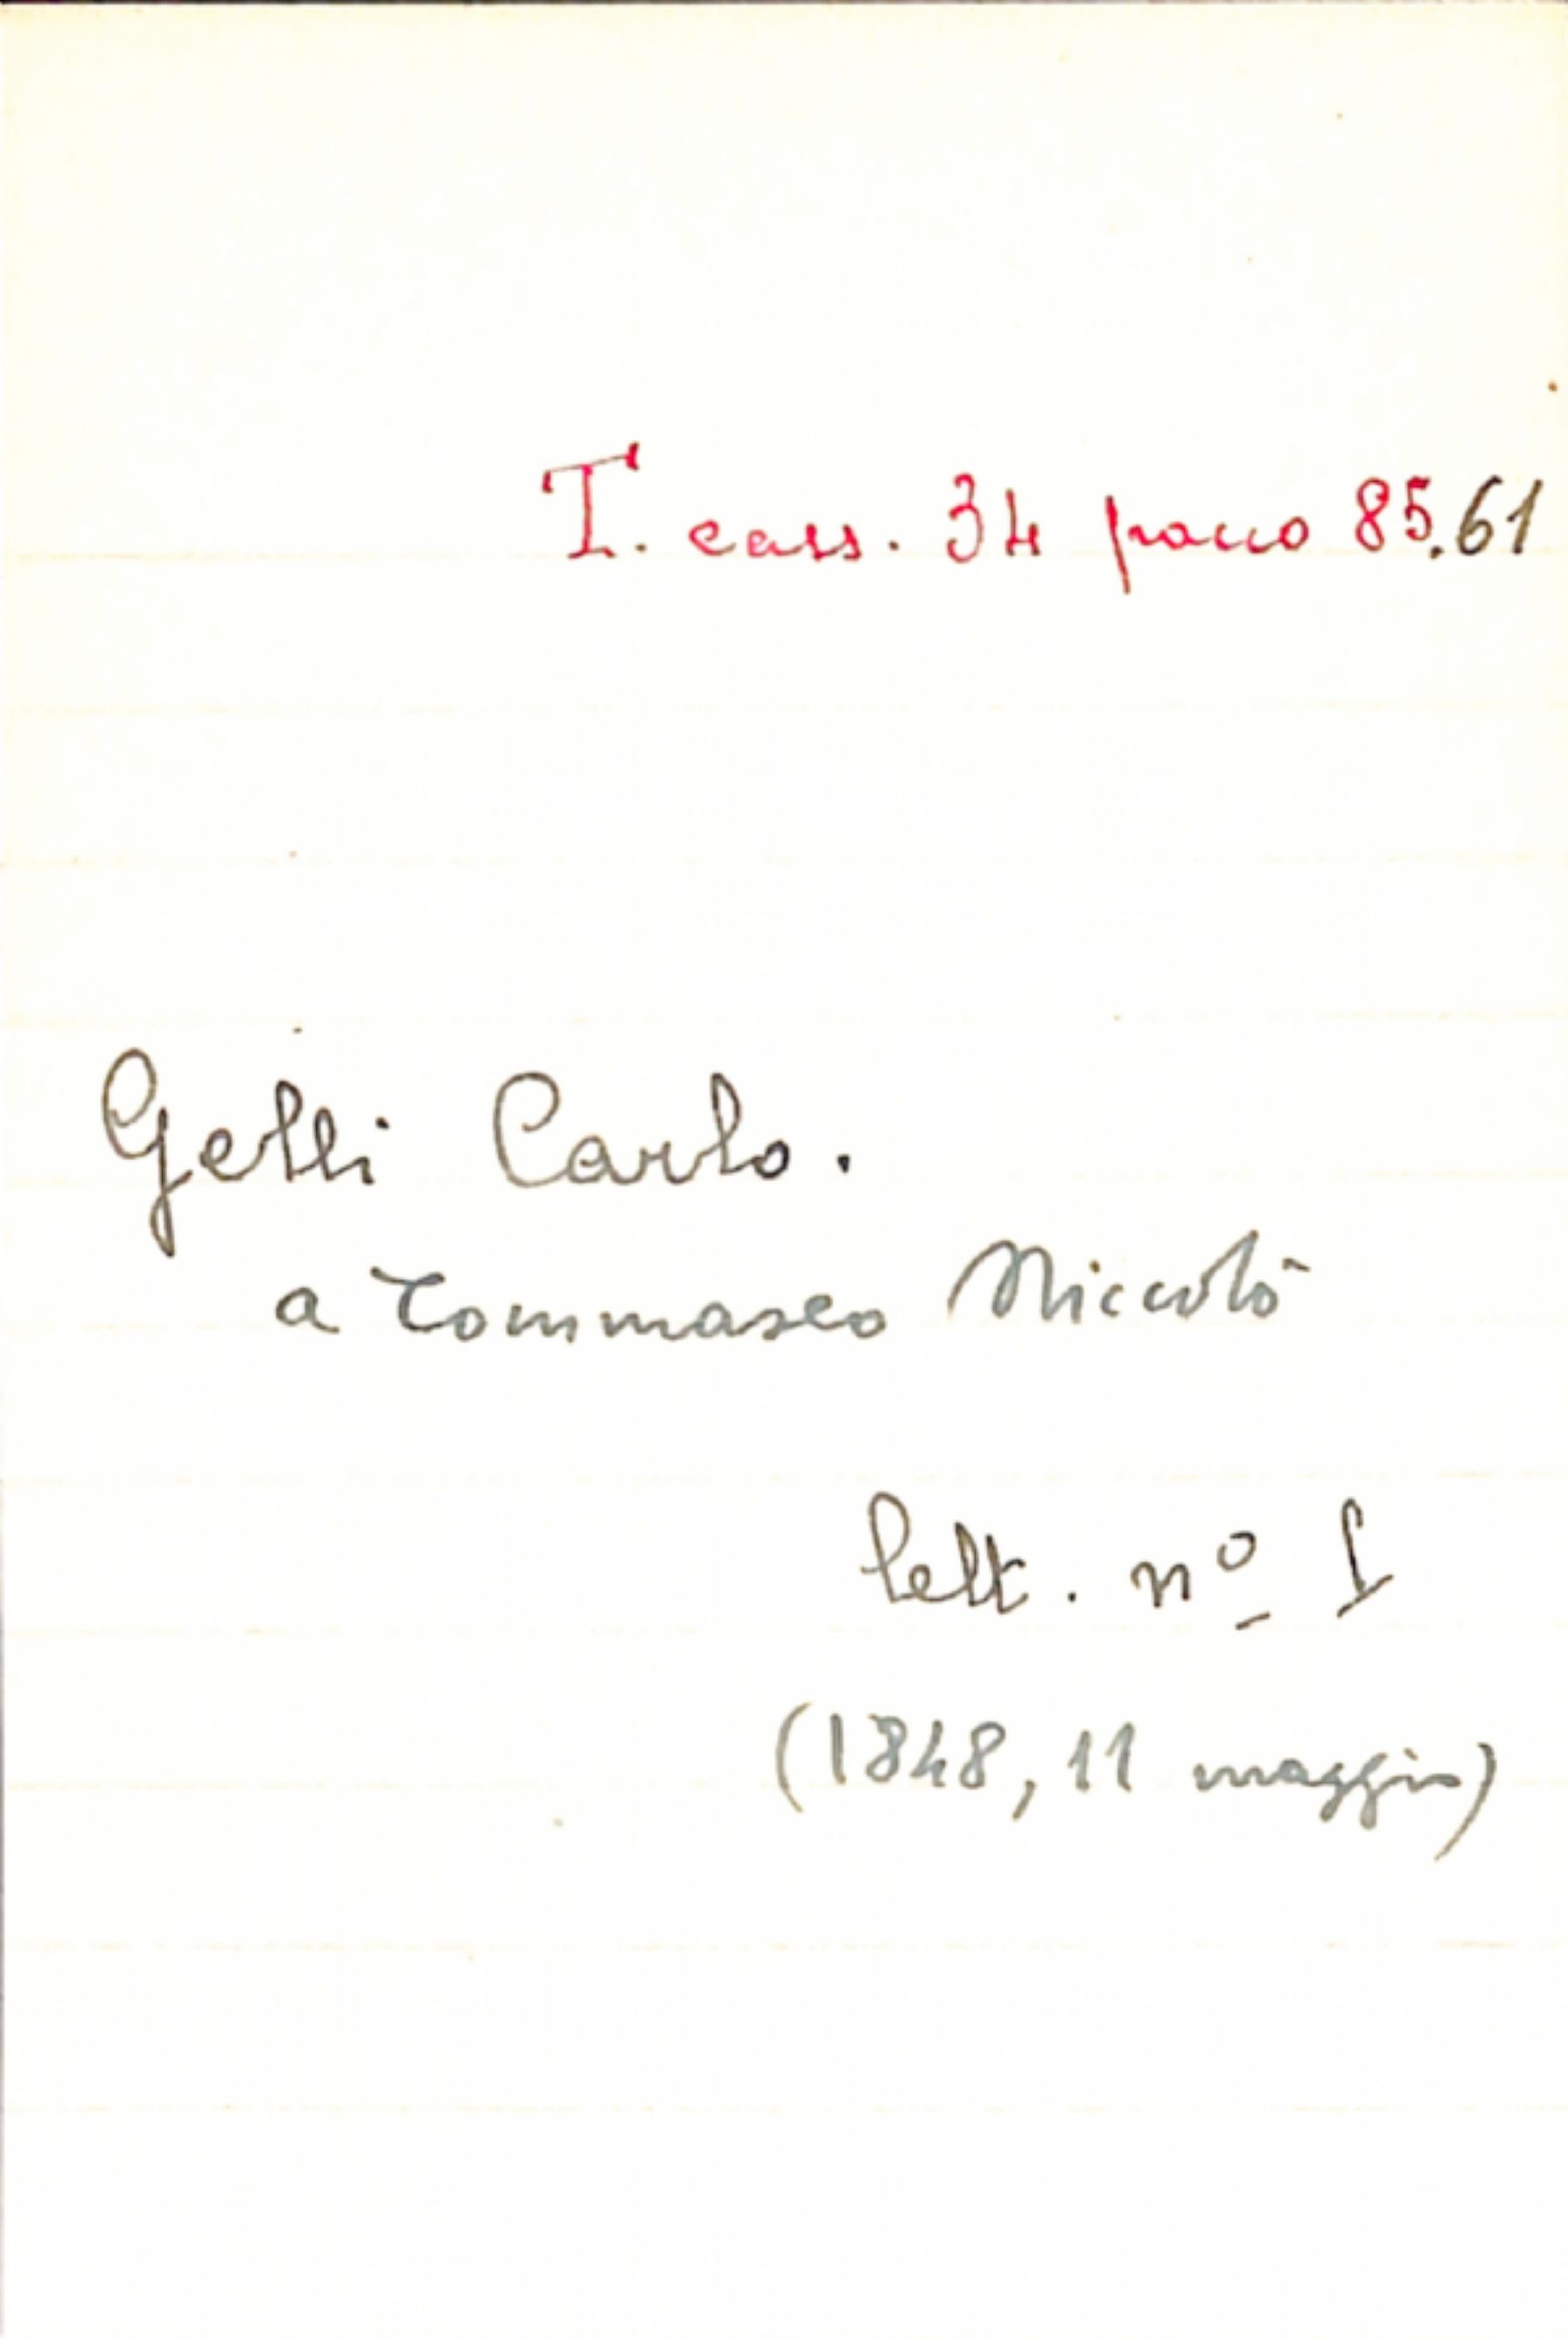 T. cass. 34 pacco 85.61
Gelli Carlo.
a Tommaseo Niccolò
lett. nº 1
(1848, 11 maggio)